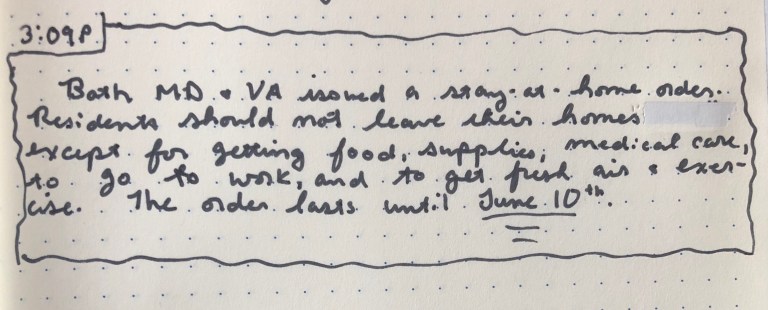 3:09P
Both MD & VA issued a stay-at-home order.
Residents should not leave their homes
except for getting food, supplies, medical care,
to go to work, and to get fresh air & exer-
cise. The order lasts until June 10th.